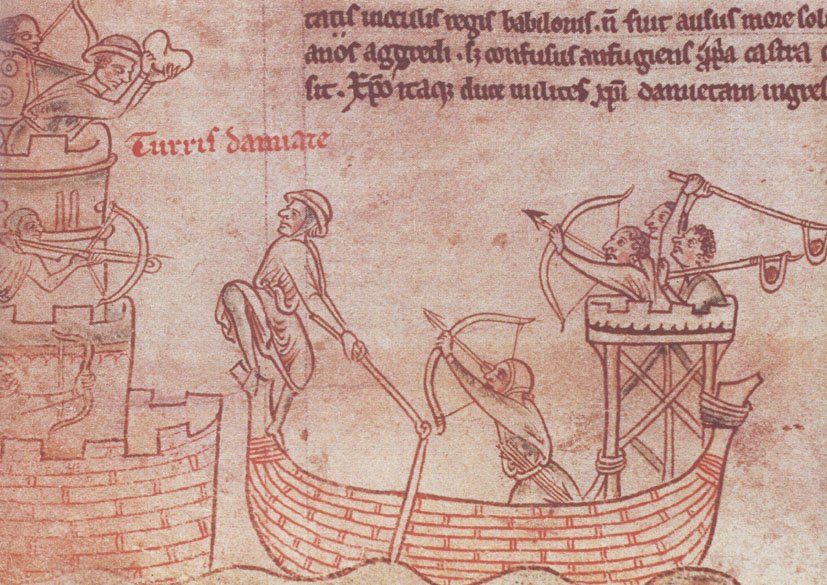 tatis incolis regis babilonis. ñ fuit ausus more sol
anos aggredi . sz confusus aufugiens castra
sit . Xp̄o itaqz duce milites xp̄i damietam ingres
Turris damiate